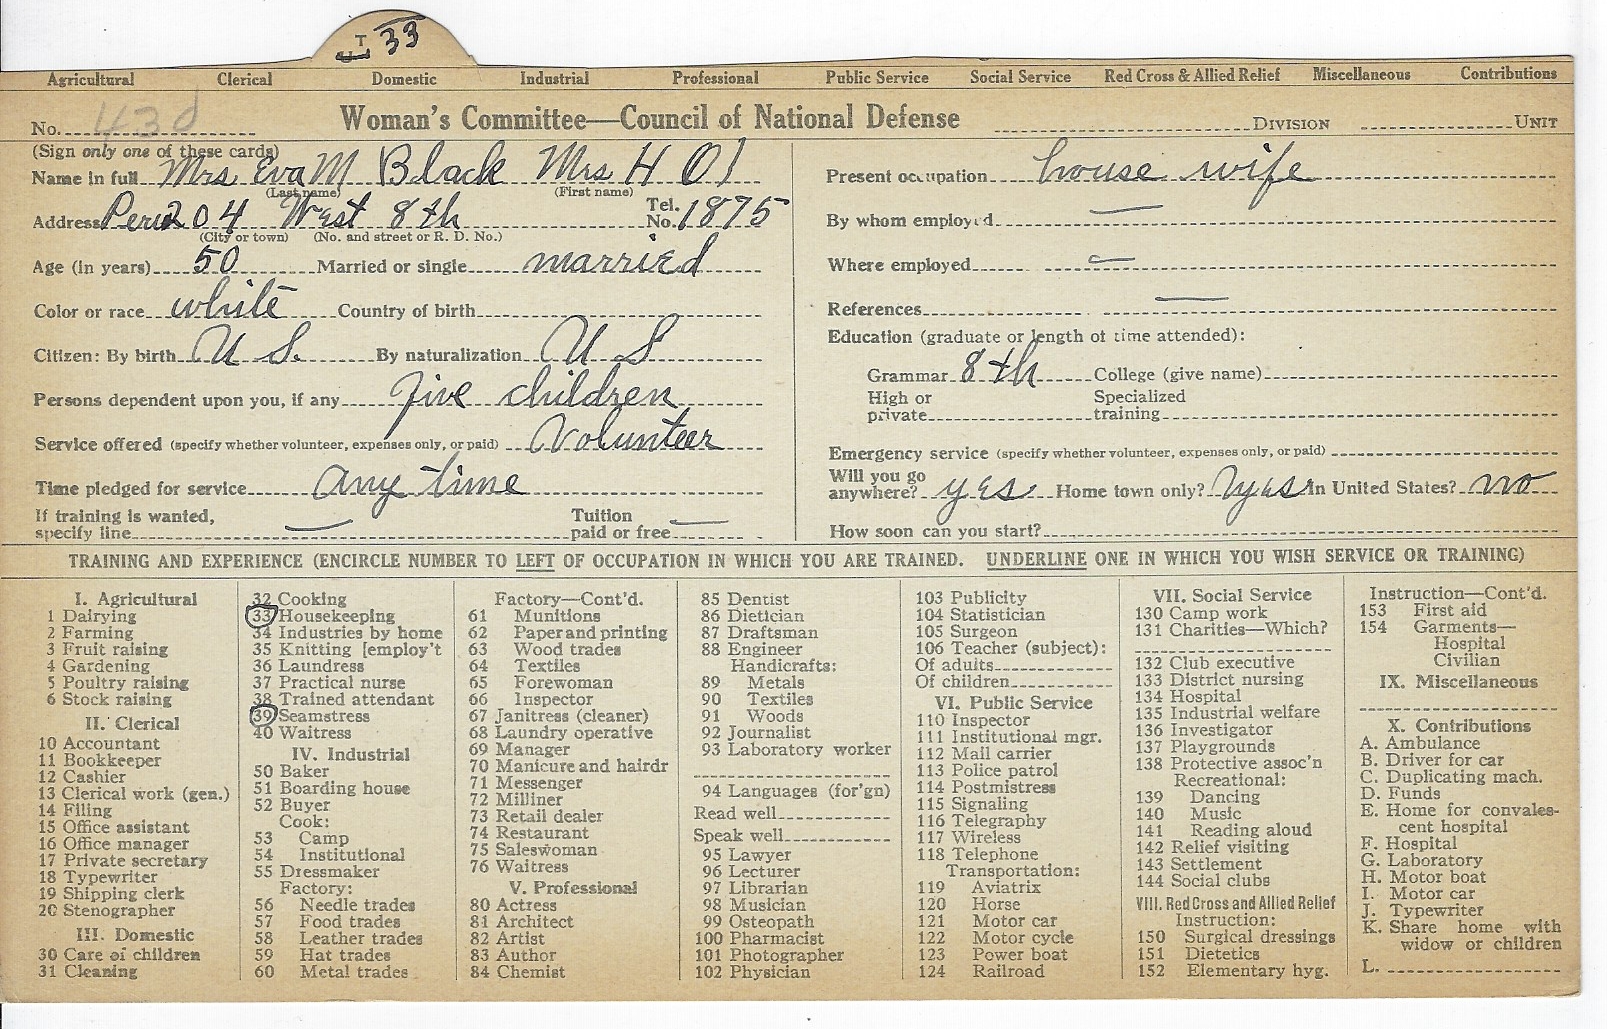 T 33
Agricultural Clerical Domestic Industrial Professional Public Service Social Service Red Cross & Allied Relief Miscellaneous Contributions
No. 43d Woman's Committee—Council of National Defense DIVISION UNIT
(Sign only one of these cards)
Name in full Mrs Eva M Black Mrs H Ol
(Last name) (First name)
Address Peru 204 West 8th Tel. No. 1875
(City or town) (No. and street or R. D. No.)
Age (in years) 50 Married or single married
Color or race white Country of birth
Citizen: By birth U S. By naturalization U S
Persons dependent upon you, if any five children
Service offered (specify whether volunteer, expenses only, or paid) Volunteer
Time pledged for service any time
If training is wanted, specify line — Tuition paid or free —
Present occupation house wife
By whom employed —
Where employed —
References —
Education (graduate or length of time attended):
Grammar 8th College (give name)
High or private Specialized training
Emergency service (specify whether volunteer, expenses only, or paid)
Will you go anywhere? yes Home town only? yes In United States? no
How soon can you start?
TRAINING AND EXPERIENCE (ENCIRCLE NUMBER TO LEFT OF OCCUPATION IN WHICH YOU ARE TRAINED. UNDERLINE ONE IN WHICH YOU WISH SERVICE OR TRAINING)
I. Agricultural
1 Dairying
2 Farming
3 Fruit raising
4 Gardening
5 Poultry raising
6 Stock raising
II. Clerical
10 Accountant
11 Bookkeeper
12 Cashier
13 Clerical work (gen.)
14 Filing
15 Office assistant
16 Office manager
17 Private secretary
18 Typewriter
19 Shipping clerk
20 Stenographer
III. Domestic
30 Care of children
31 Cleaning
32 Cooking
33 Housekeeping
34 Industries by home
35 Knitting [employ't
36 Laundress
37 Practical nurse
38 Trained attendant
39 Seamstress
40 Waitress
IV. Industrial
50 Baker
51 Boarding house
52 Buyer
Cook:
53 Camp
54 Institutional
55 Dressmaker
Factory:
56 Needle trades
57 Food trades
58 Leather trades
59 Hat trades
60 Metal trades
Factory—Cont'd.
61 Munitions
62 Paper and printing
63 Wood trades
64 Textiles
65 Forewoman
66 Inspector
67 Janitress (cleaner)
68 Laundry operative
69 Manager
70 Manicure and hairdr
71 Messenger
72 Milliner
73 Retail dealer
74 Restaurant
75 Saleswoman
76 Waitress
V. Professional
80 Actress
81 Architect
82 Artist
83 Author
84 Chemist
85 Dentist
86 Dietician
87 Draftsman
88 Engineer
Handicrafts:
89 Metals
90 Textiles
91 Woods
92 Journalist
93 Laboratory worker
94 Languages (for'gn)
Read well
Speak well
95 Lawyer
96 Lecturer
97 Librarian
98 Musician
99 Osteopath
100 Pharmacist
101 Photographer
102 Physician
103 Publicity
104 Statistician
105 Surgeon
106 Teacher (subject):
Of adults
Of children
VI. Public Service
110 Inspector
111 Institutional mgr.
112 Mail carrier
113 Police patrol
114 Postmistress
115 Signaling
116 Telegraphy
117 Wireless
118 Telephone
Transportation:
119 Aviatrix
120 Horse
121 Motor car
122 Motor cycle
123 Power boat
124 Railroad
VII. Social Service
130 Camp work
131 Charities—Which?
132 Club executive
133 District nursing
134 Hospital
135 Industrial welfare
136 Investigator
137 Playgrounds
138 Protective assoc'n
Recreational:
139 Dancing
140 Music
141 Reading aloud
142 Relief visiting
143 Settlement
144 Social clubs
VIII. Red Cross and Allied Relief
Instruction:
150 Surgical dressings
151 Dietetics
152 Elementary hyg.
Instruction—Cont'd.
153 First aid
154 Garments—
Hospital
Civilian
IX. Miscellaneous
X. Contributions
A. Ambulance
B. Driver for car
C. Duplicating mach.
D. Funds
E. Home for convales-
cent hospital
F. Hospital
G. Laboratory
H. Motor boat
I. Motor car
J. Typewriter
K. Share home with
widow or children
L.